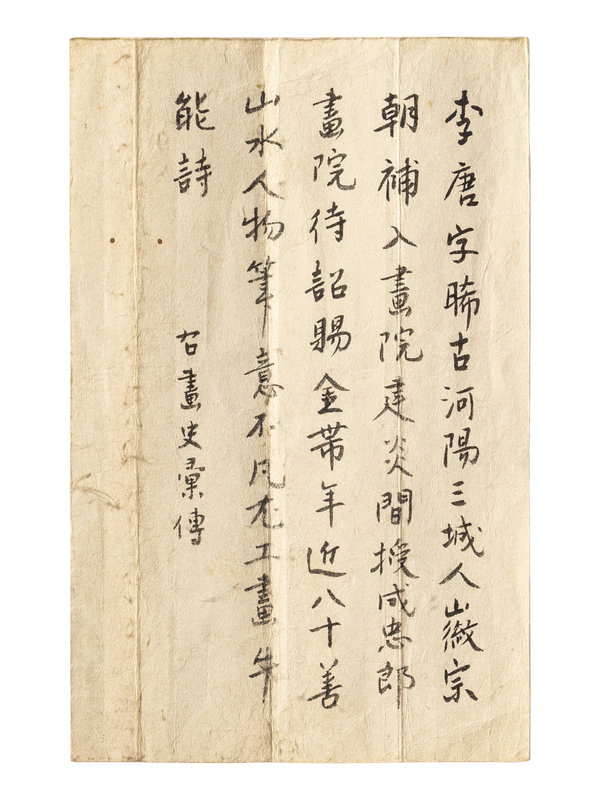 李唐字晞古河陽三城人徽宗
朝補入畫院建炎間授成忠郎
畫院待詔賜金帶年近八十善
山水人物筆意不凡尤工畫牛
能詩
右畫史彙傳